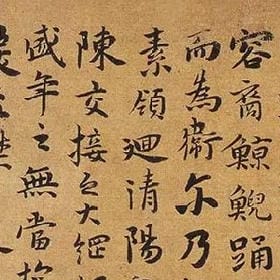 容裔鯨鯢踊
而為衛尓乃
素領迴清陽
陳交接之大綱
盛年之無當